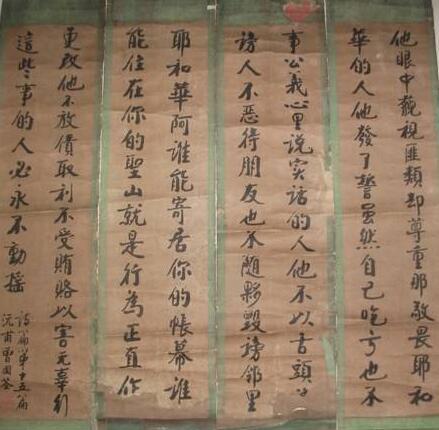 他眼中藐視匪類却尊重那敬畏耶和
華的人他發了誓雖然自己吃亏也不
事公義心里说实話的人他不以舌頭
谤人不恶待朋友也不随夥毀謗邻里
耶和華阿谁能寄居你的帳幕誰
能住在你的聖山就是行為正直作
更改他不放債取利不受賄賂以害无辜行
這些事的人必永不動搖
詩篇第十五篇
沅甫曾国荃